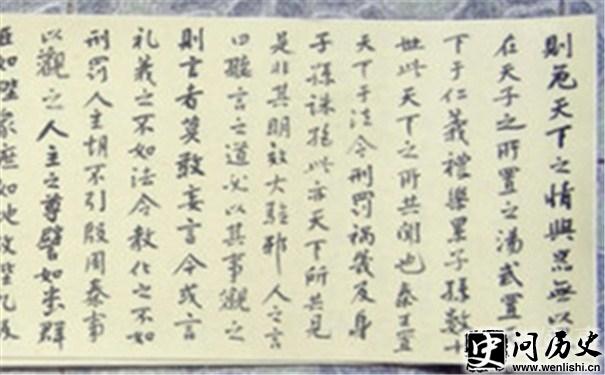 則危天下之情與器無以
在天子之所置之湯武置
下于仁義禮樂累子孫數十
世此天下之所共聞也秦王置
天下于法令刑罰禍幾及身
子孫誅絕此亦天下所共見
是非其明效大驗邪人之言
曰聽言之道必以其事觀之
則言者莫敢妄言今或言
礼義之不如法令教化之不如
刑罰人主胡不引殷周秦事
以觀之人主之尊譬如堂群
臣如陛眾庶如地故陛九級
史问历史
www.wenlishi.cn